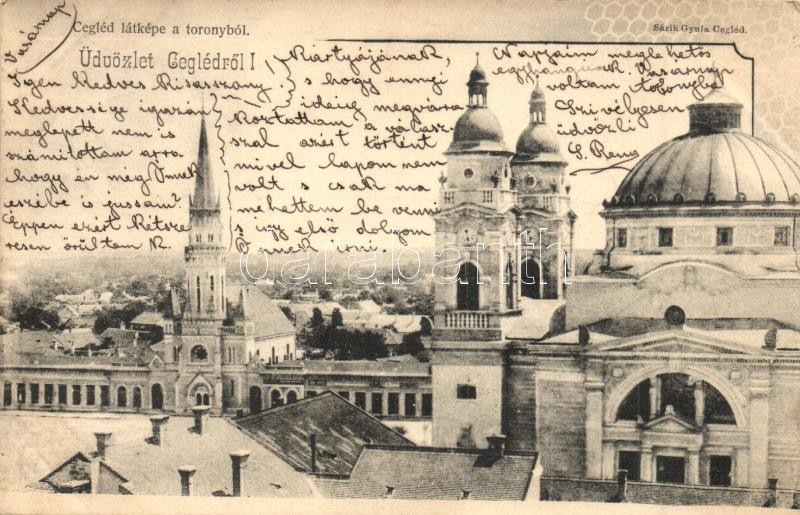 Cegléd látképe a toronyból.
Sárik Gyula Cegléd.
Üdvözlet Ceglédről!
Vasárnap
Igen Kedves Kisasszony,
Kedvessége igazán
meglepett nem is
számitottam arra
hogy én még Önnek
eszébe is jussam?
Éppen ezért Kétsze-
resen örültam K.
Kártyájának,
s hogy ennyi
ideig megvára
koztattam a válasz
szal azért történt
mivel lapom nem
volt s csak ma
mehettem be venni
s így első dolgom
Önnek irni.
Napjaim meglehetős
egyhanguak. Vasárnap
voltam
Szivélyesen
üdvözli
S.
darabanth